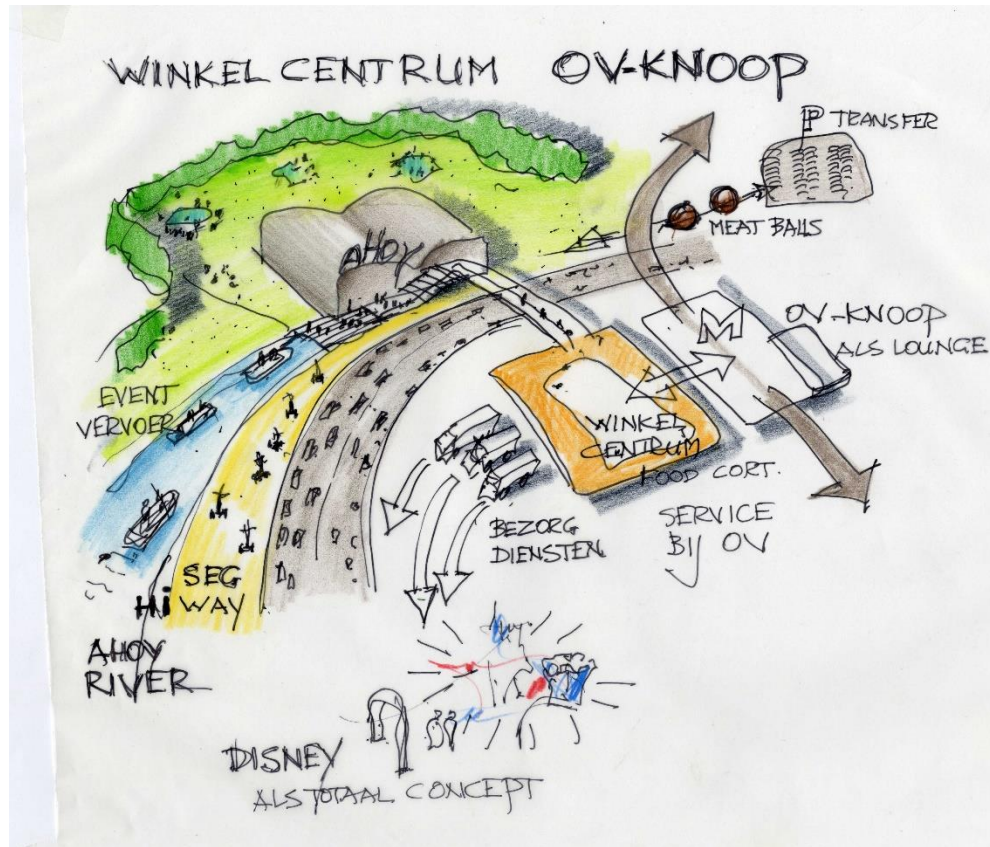 WINKEL CENTRUM OV-KNOOP
P TRANSFER
MEAT BALLS
AHOY
M
OV-KNOOP
ALS LOUNGE
EVENT
VERVOER
WINKEL
CENTRUM
FOOD CORT.
SERVICE
BIJ OV
BEZORG
DIENSTEN
SEG
Hi WAY
AHOY
RIVER
DISNEY
ALS TOTAAL CONCEPT